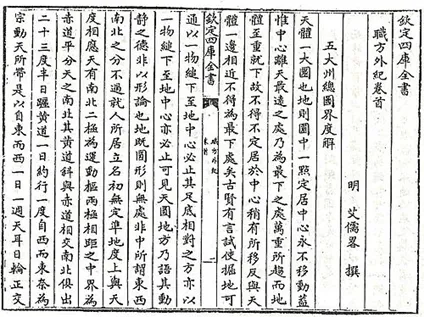 欽定四庫全書
職方外紀卷首
明 艾儒畧 撰
五大州總圖界度解
天體一大圜也地則圜中一點定居中心永不移動蓋
惟中心離天最遠之處乃為最下之處萬重所趨而地
體至重就下故不得不定居於中心稍有所移反與天
體一邊相近不得為最下處矣古賢有言試使掘地可
欽定四庫全書
職方外紀
卷首
一
通以一物縋下至地中心必止其足底相對之方亦以
一物縋下至地中心亦必止可見天圓地方乃語其動
靜之德非以形論也地既圓形則無處非中所謂東西
南北之分不過就人所居立名初無定準地度上與天
度相應天有南北二極為運動樞兩極相距之中界為
赤道平分天之南北其黃道斜與赤道相交南北俱出
二十三度半日躔黃道一日約行一度自西而東奈為
宗動天所帶是以自東而西一日一週天耳日輪正交